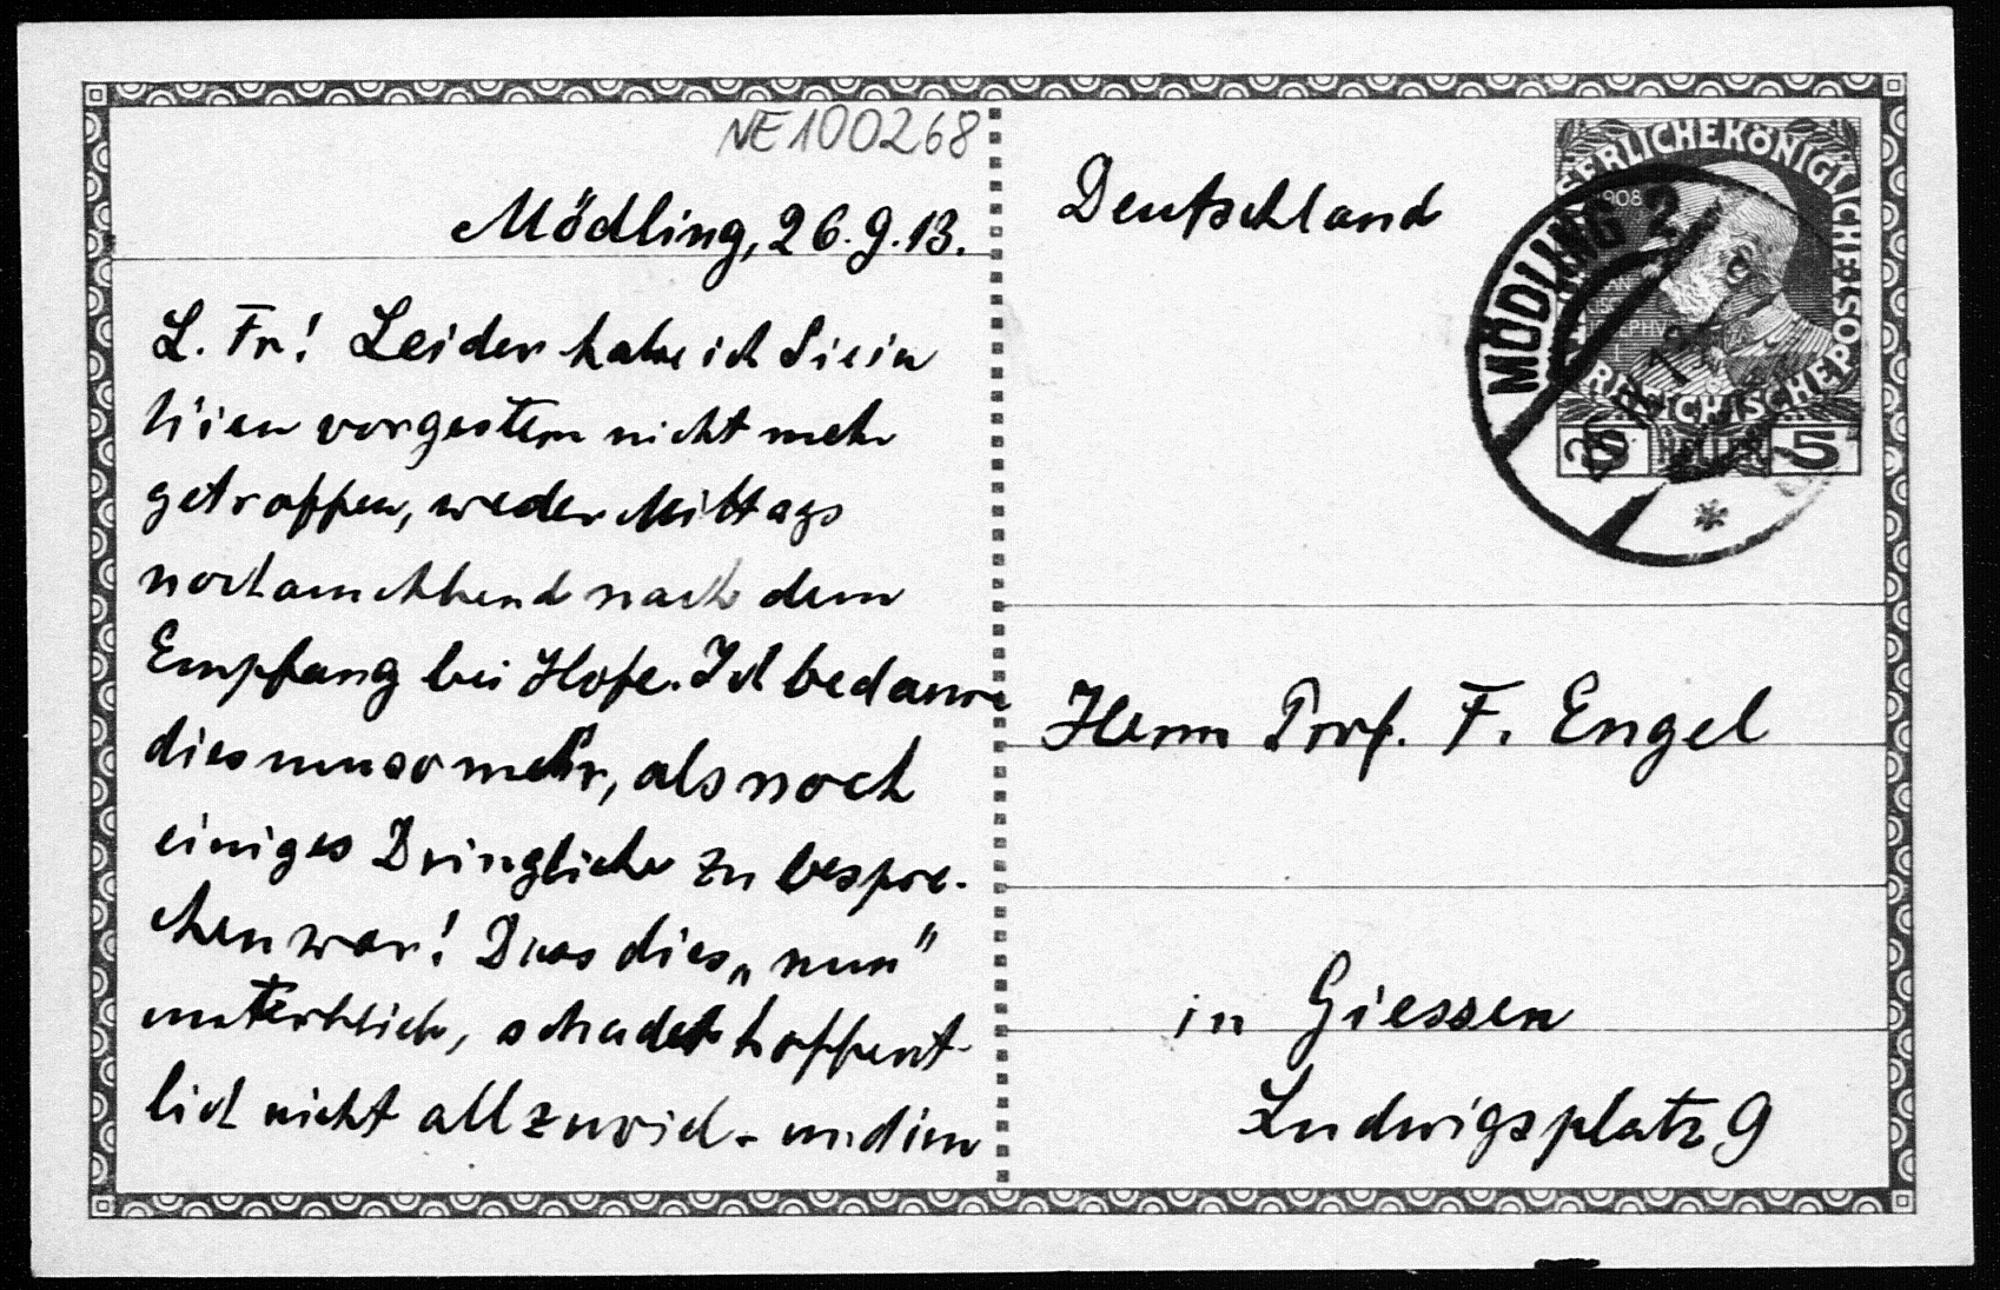 NE100268
Mödling, 26.9.13.
L. Fr! Leider habe ich Sie in
Wien vorgestern nicht mehr
getroffen, weder Mittags
noch am Abend nach dem
Empfang bei Hofe. Ich bedaure
dies umsomehr, als noch
einiges Dringliche zu bespre-
chen war! Dass dies „nun"
unterblieb, schadet hoffent-
lich nicht allzuviel - und im
Deutschland
Herrn Prof. F. Engel
in Giessen
Ludwigsplatz 9
MÖDLING 2
SERLICHEKÖNIGLICHE
REICHISCHEPOST
1908
HELLER
5